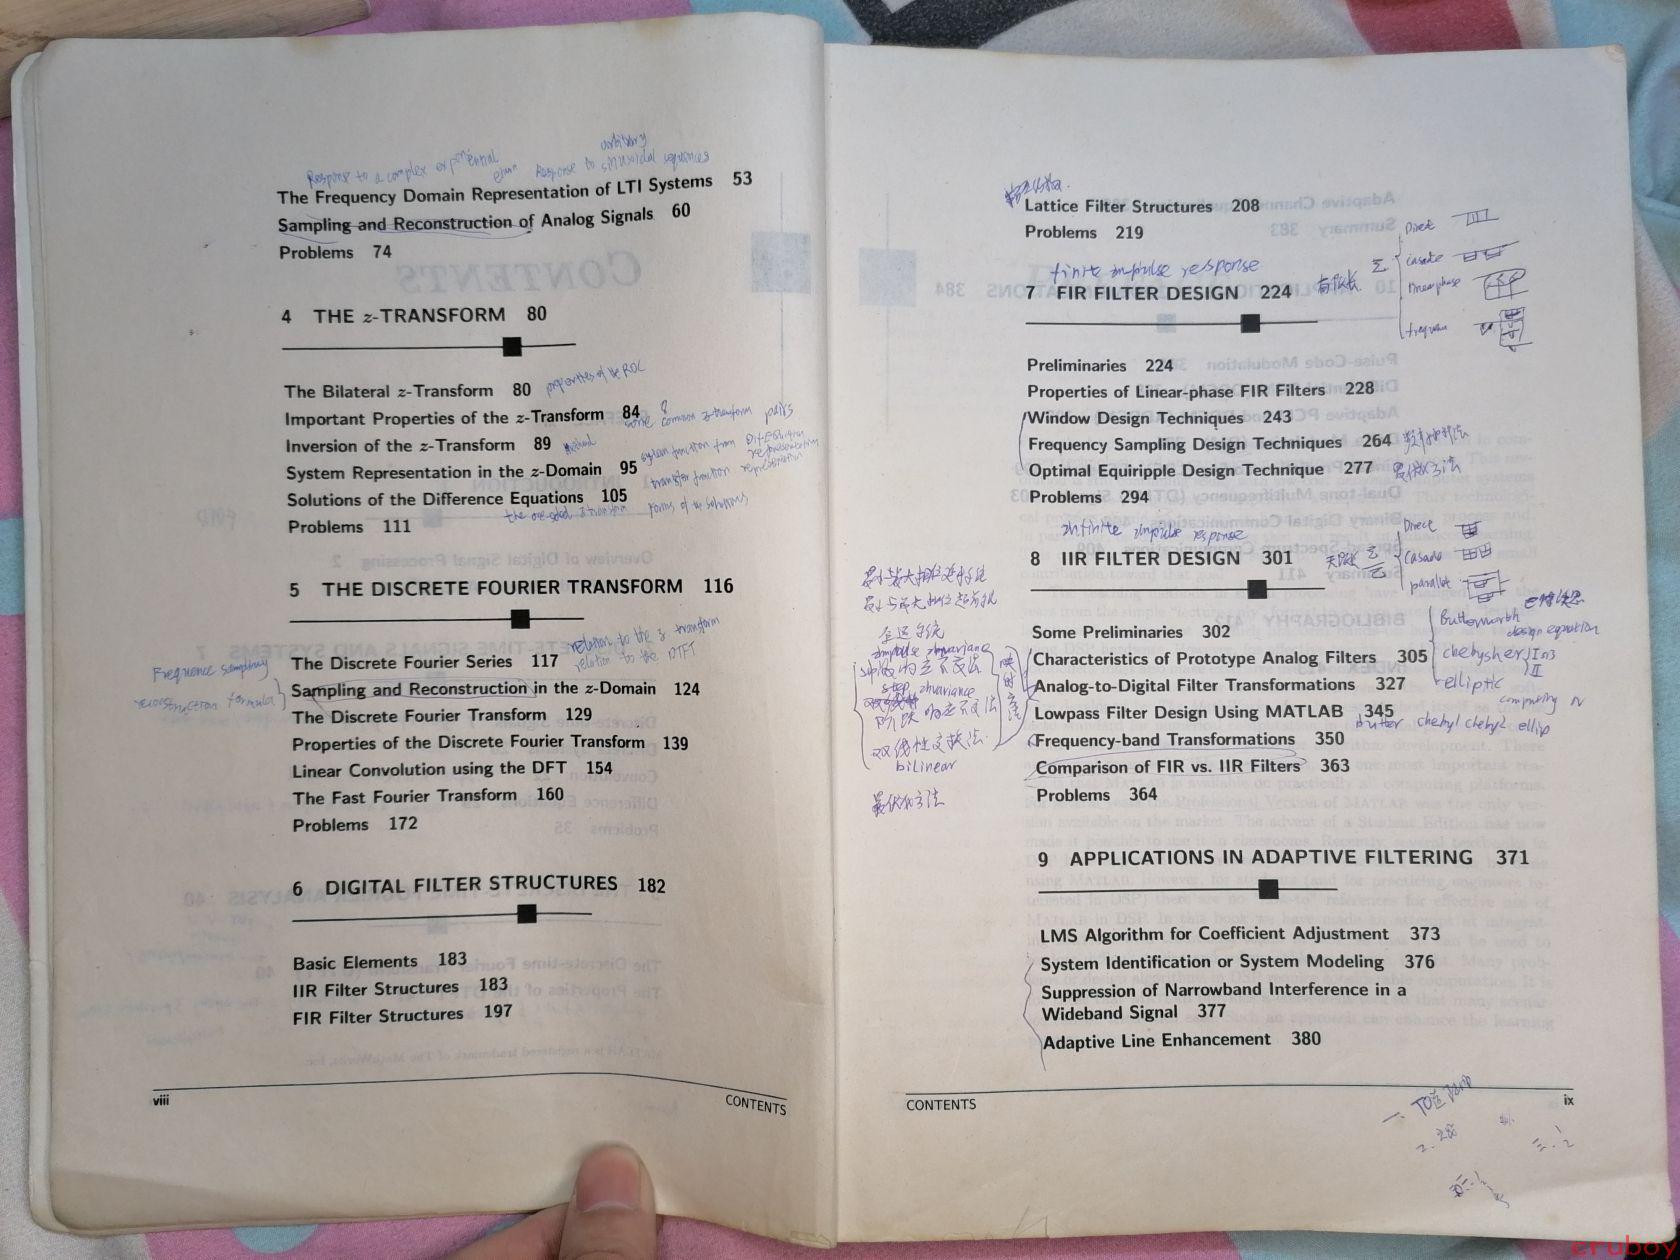 Response to a complex exponential
Response to arbitrary sinusoidal sequences
The Frequency Domain Representation of LTI Systems 53
Sampling and Reconstruction of Analog Signals 60
Problems 74
4 THE z-TRANSFORM 80
The Bilateral z-Transform 80 properties of the ROC
Important Properties of the z-Transform 84 some common z-transform pairs
Inversion of the z-Transform 89 method
system function from Difference representation
System Representation in the z-Domain 95
transfer function representation
Solutions of the Difference Equations 105
the one-sided z transform forms of the solutions
Problems 111
5 THE DISCRETE FOURIER TRANSFORM 116
relation to the z transform
The Discrete Fourier Series 117 relation to the DTFT
Frequence sampling
Sampling and Reconstruction in the z-Domain 124
reconstruction formula
The Discrete Fourier Transform 129
Properties of the Discrete Fourier Transform 139
Linear Convolution using the DFT 154
The Fast Fourier Transform 160
Problems 172
6 DIGITAL FILTER STRUCTURES 182
Basic Elements 183
IIR Filter Structures 183
FIR Filter Structures 197
viii
CONTENTS
Lattice Filter Structures 208
Problems 219
finite impulse response
7 FIR FILTER DESIGN 224 有限长
Direct
casade
linear phase
Preliminaries 224
Properties of Linear-phase FIR Filters 228
Window Design Techniques 243
Frequency Sampling Design Techniques 264
Optimal Equiripple Design Technique 277
Problems 294
infinite impulse response
8 IIR FILTER DESIGN 301 无限长
Direct
casade
parallel
Some Preliminaries 302
Characteristics of Prototype Analog Filters 305
Butterworth
design equation
chebysher I II
elliptic
Analog-to-Digital Filter Transformations 327
computing N
Lowpass Filter Design Using MATLAB 345
butter cheby1 cheby2 ellip
Frequency-band Transformations 350
Comparison of FIR vs. IIR Filters 363
Problems 364
全通系统
impulse invariance
响应不变法
step invariance
阶跃响应不变法
双线性变换法
bilinear
最优化方法
9 APPLICATIONS IN ADAPTIVE FILTERING 371
LMS Algorithm for Coefficient Adjustment 373
System Identification or System Modeling 376
Suppression of Narrowband Interference in a
Wideband Signal 377
Adaptive Line Enhancement 380
CONTENTS
ix
cruboy